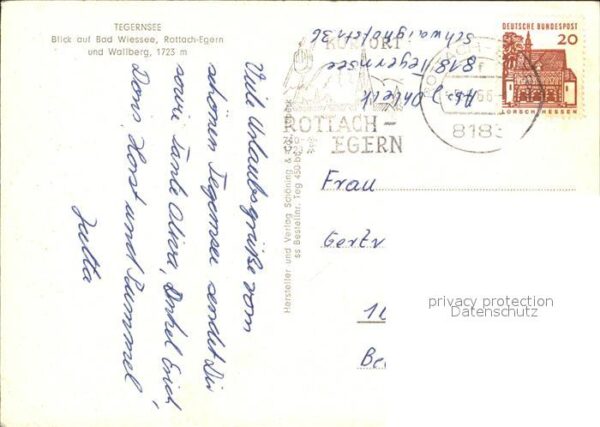 TEGERNSEE
Blick auf Bad Wiessee, Rottach-Egern
und Wallberg, 1723 m
Viele Urlaubsgrüße vom
schönen Tegernsee sendet Dir
sowie Tante Oliva, Onkel Erich
Doris, Horst und Pummel
Jutta
Hersteller und Verlag Schöning &
Bestellnr. Teg 450
Abs. J.
818 Tegernsee
Schwaighofstr. 36
KURORT
ROTTACH-
EGERN
8183
DEUTSCHE BUNDESPOST
20
LORSCH/HESSEN
Frau
Gertr
1
Be
privacy protection
Datenschutz